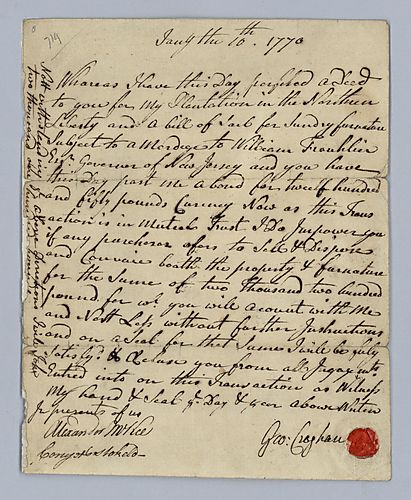 Jany the 10th. 1770
Whereas I have this Day perfected a Deed
to you for my Plantation in the Northren
Liberty and a bill of Seal for Sundry furnature
Subject to a Mordege to William Franklin
Esqr. Governor of New Jersey and you have
this Day past me a bond for twelf hundred
and fifty pounds Curency Now as this Trans
action is in Mutual Trust I Do Impower you
if any purchaser ofers to Sell & Dispose
and Convaire boath the property & furnature
for the Sume of two thousand two hundred
pound for wh. you will acount with Me
and Nott Less without farther Instructions
and on a Seal for that Sume I will be fuly
Satisfy'd & Release you from all Ingagments
Entred into on this Transaction as Witness
My hand & Seal ye. Day & year above Writen
In presents of us
Alexander McKee
Geo: Croghan
Nott withstanding ye above
two thousand one hundred pounds
719